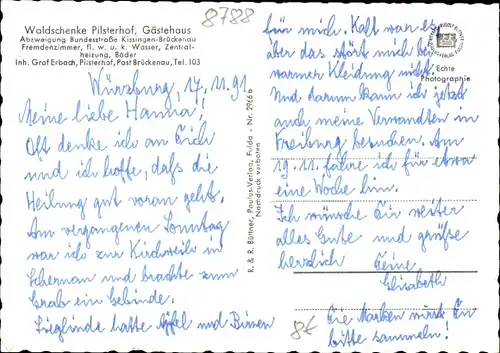 8788
Waldschenke Pilsterhof, Gästehaus
Abzweigung Bundesstraße Kissingen-Brückenau
Fremdenzimmer, fl. w. u. k. Wasser, Zentral-
heizung, Bäder
Inh. Graf Erbach, Pilsterhof, Post Brückenau, Tel. 103
Würzburg, 17.11.91
Meine liebe Hanna!
Oft denke ich an Dich
und ich hoffe, daß die
Heilung gut voran geht.
Am vergangenen Sonntag
war ich zur Kirchweih in
und brachte zum
Grab ein Gebinde.
Sieglinde hatte Äpfel und Birnen
R. & R. Büttner, Paulus-Verlag, Fulda - Nr. 2966 b
Nachdruck verboten
für mich. Kalt war es,
aber das stört mich bei
warmer Kleidung nicht.
Echte
Photographie
Und darum kann ich jetzt
auch meine Verwandten in
Freiburg besuchen. Am
19.11. fahre ich für etwa
eine Woche hin.
Ich wünsche Dir weiter
alles Gute und grüße
herzlich Deine
Elisabeth
8€
Die Marken mußt Du
bitte sammeln!